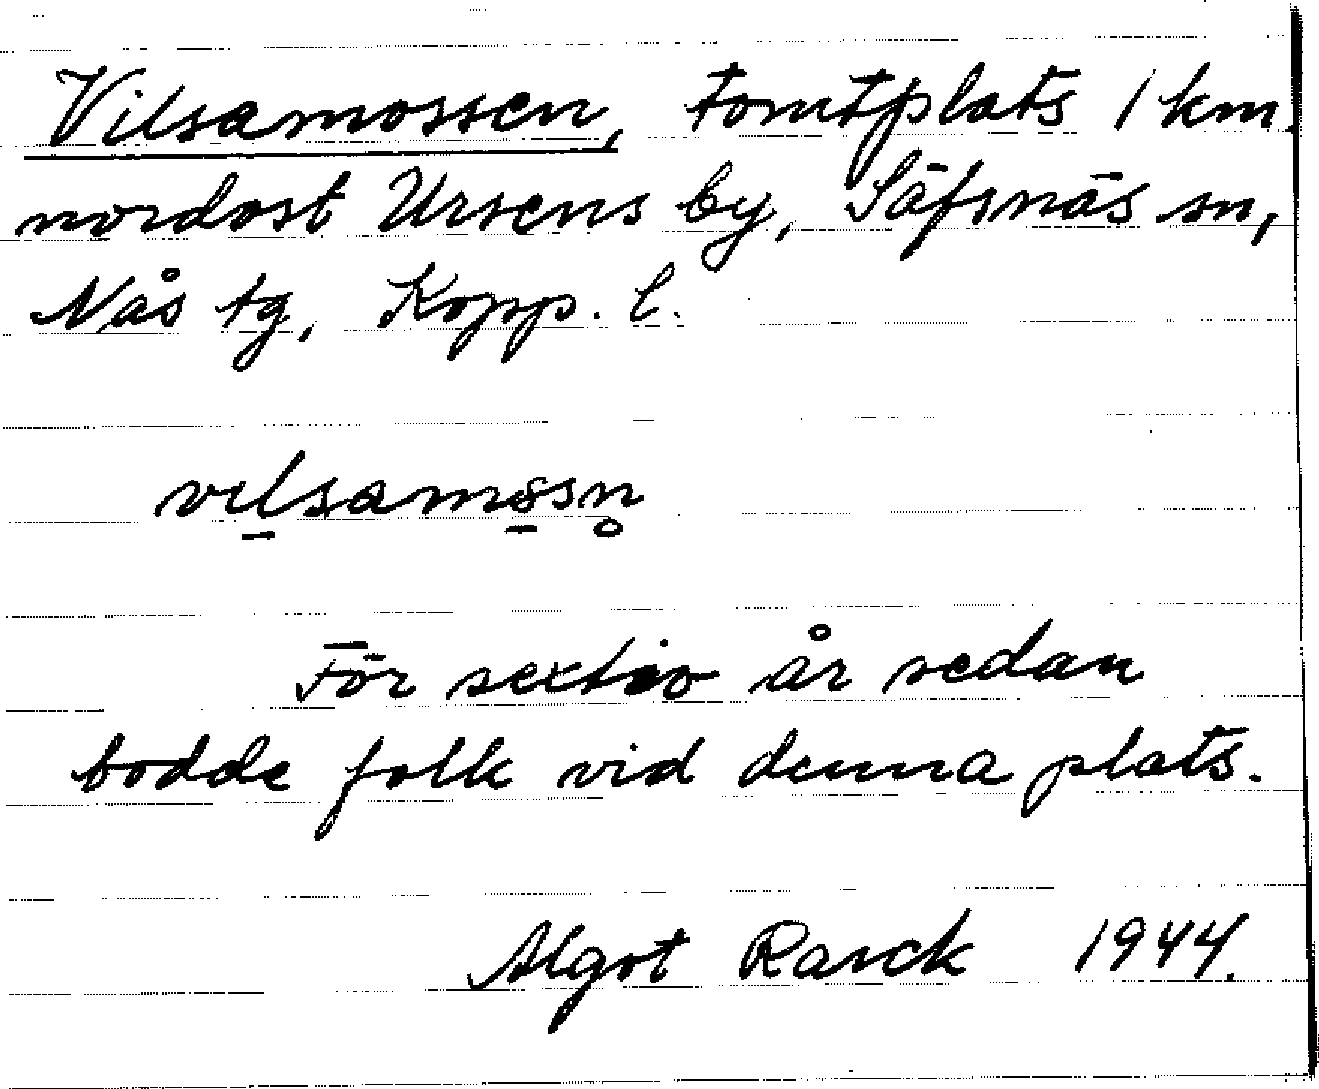 Vilsamossen, tomtplats 1 km.
nordost Ursens by, Säfsnäs sn,
Nås tg, Kopp. l.
vilsamossn̥
För sextio år sedan
bodde folk vid denna plats.
Algot Rasck 1944.